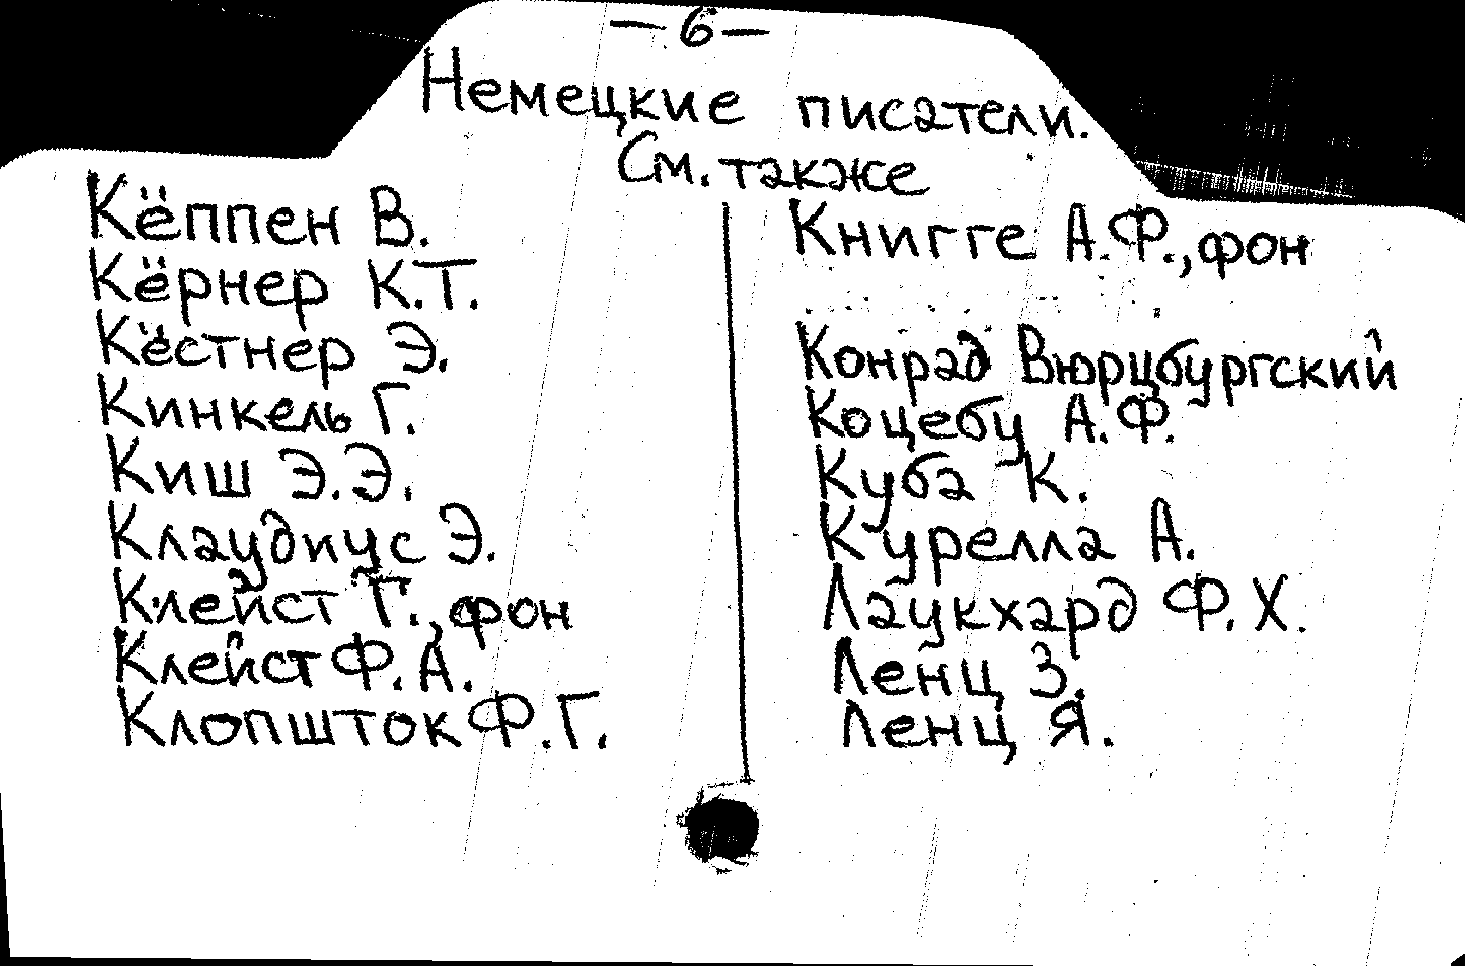 — 6 —
Немецкие писатели.
См. также
Кёппен В.
Кёрнер К.Т.
Кёстнер Э.
Кинкель Г.
Киш Э.Э.
Клаудиус Э.
Клейст Г., фон
Клейст Ф.А.
Клопшток Ф.Г.
Книгге А.Ф., фон
Конрад Вюрцбургский
Коцебу А.Ф.
Куба К.
Курелла А.
Лаукхард Ф.Х.
Ленц З.
Ленц Я.